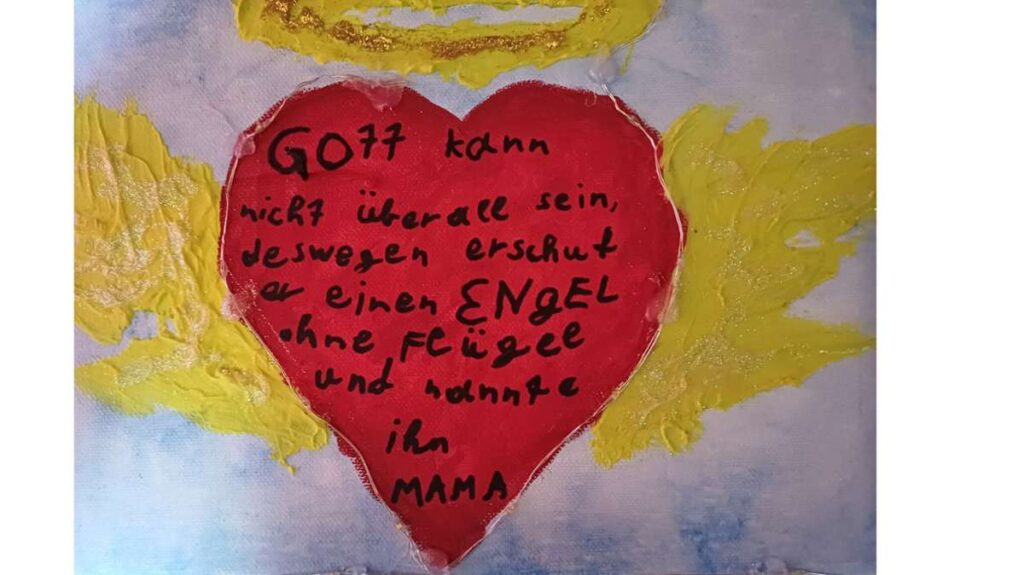 GOTT kann
nicht überall sein,
deswegen erschuf
er einen ENgEL
ohne Flügel
und nannte
ihn
MAMA